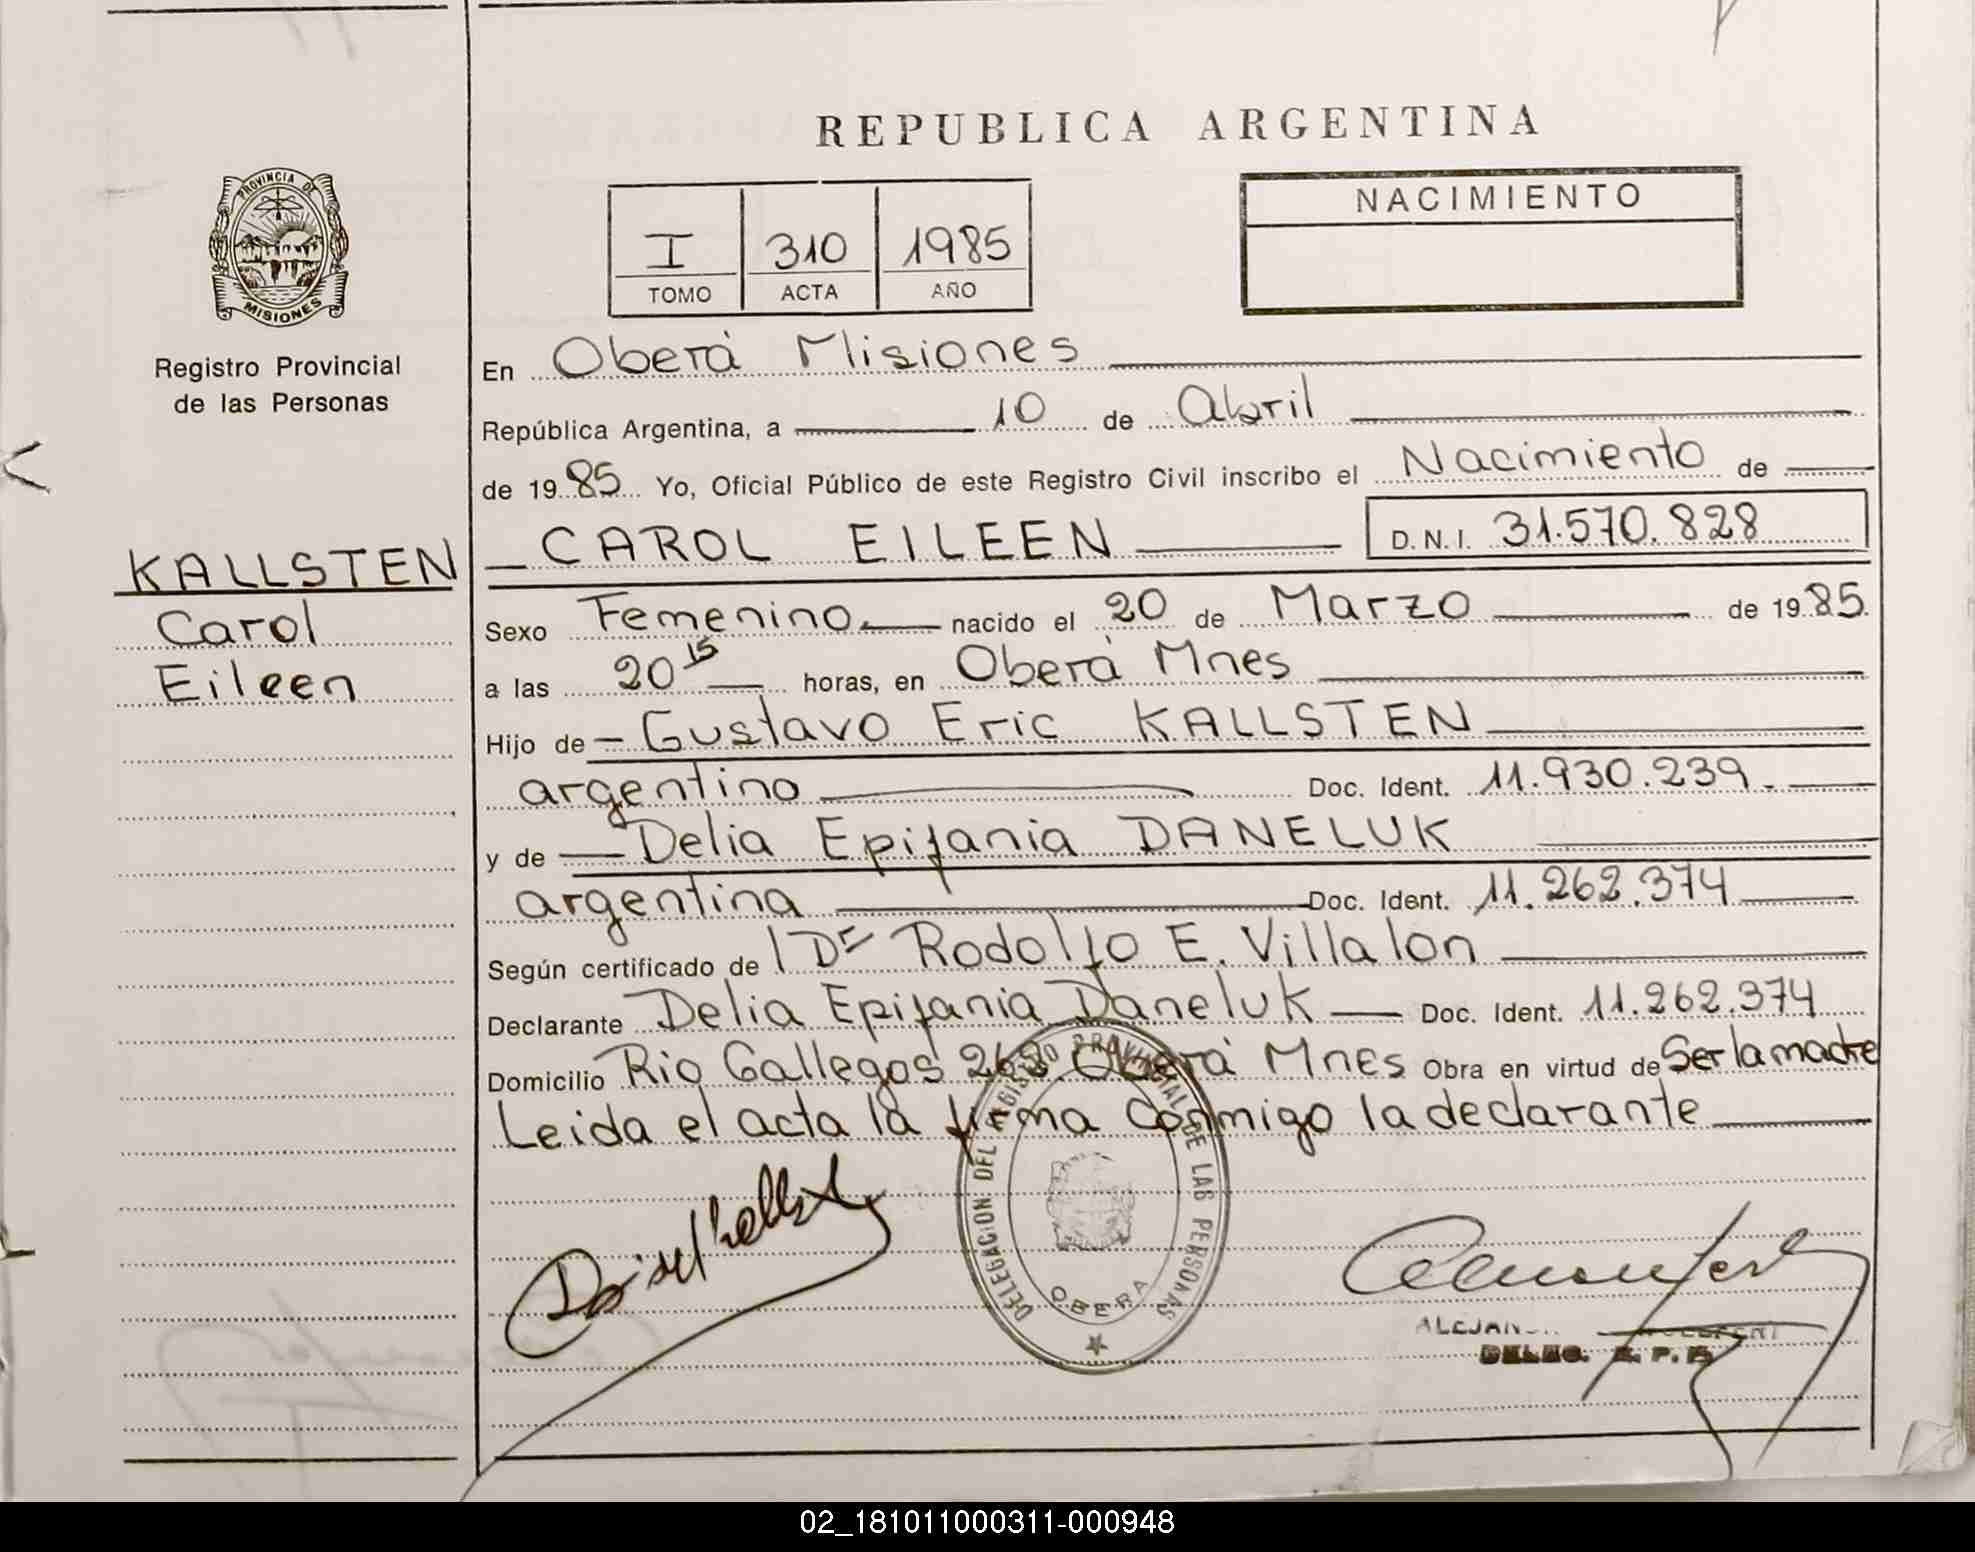 REPUBLICA ARGENTINA
PROVINCIA DE
MISIONES
Registro Provincial
de las Personas
I 310 1985
TOMO ACTA AÑO
NACIMIENTO
En Oberá Misiones
República Argentina, a 10 de Abril
de 1985 Yo, Oficial Público de este Registro Civil inscribo el Nacimiento de
KALLSTEN
Carol
Eileen
CAROL EILEEN D.N.I. 31.570.828
Sexo Femenino nacido el 20 de Marzo de 1985.
a las 20 15 horas, en Oberá Mnes
Hijo de Gustavo Eric KALLSTEN
argentino Doc. Ident. 11.930.239.
y de Delia Epifania DANELUK
argentina Doc. Ident. 11.262.374
Según certificado de Dr Rodolfo E. Villalon
Declarante Delia Epifania Daneluk Doc. Ident. 11.262.374
Domicilio Rio Gallegos 268 Oberá Mnes Obra en virtud de Ser la madre
Leida el acta la firma conmigo la declarante
DELEGACION DEL REGISTRO PROVINCIAL DE LAS PERSONAS
OBERA
DELEG. R. P. P.
02_181011000311-000948